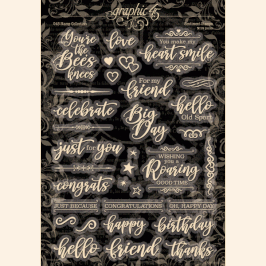 graphic 45
You're
the
Bees
knees
love
You make my
heart smile
For my
friend
celebrate
Big
Day
hello
Old Sport
just for you
WISHING
YOU A
Roaring
GOOD TIME
congrats
JUST BECAUSE
CONGRATULATIONS
OH, HAPPY DAY
happy
birthday
hello
friend
thanks